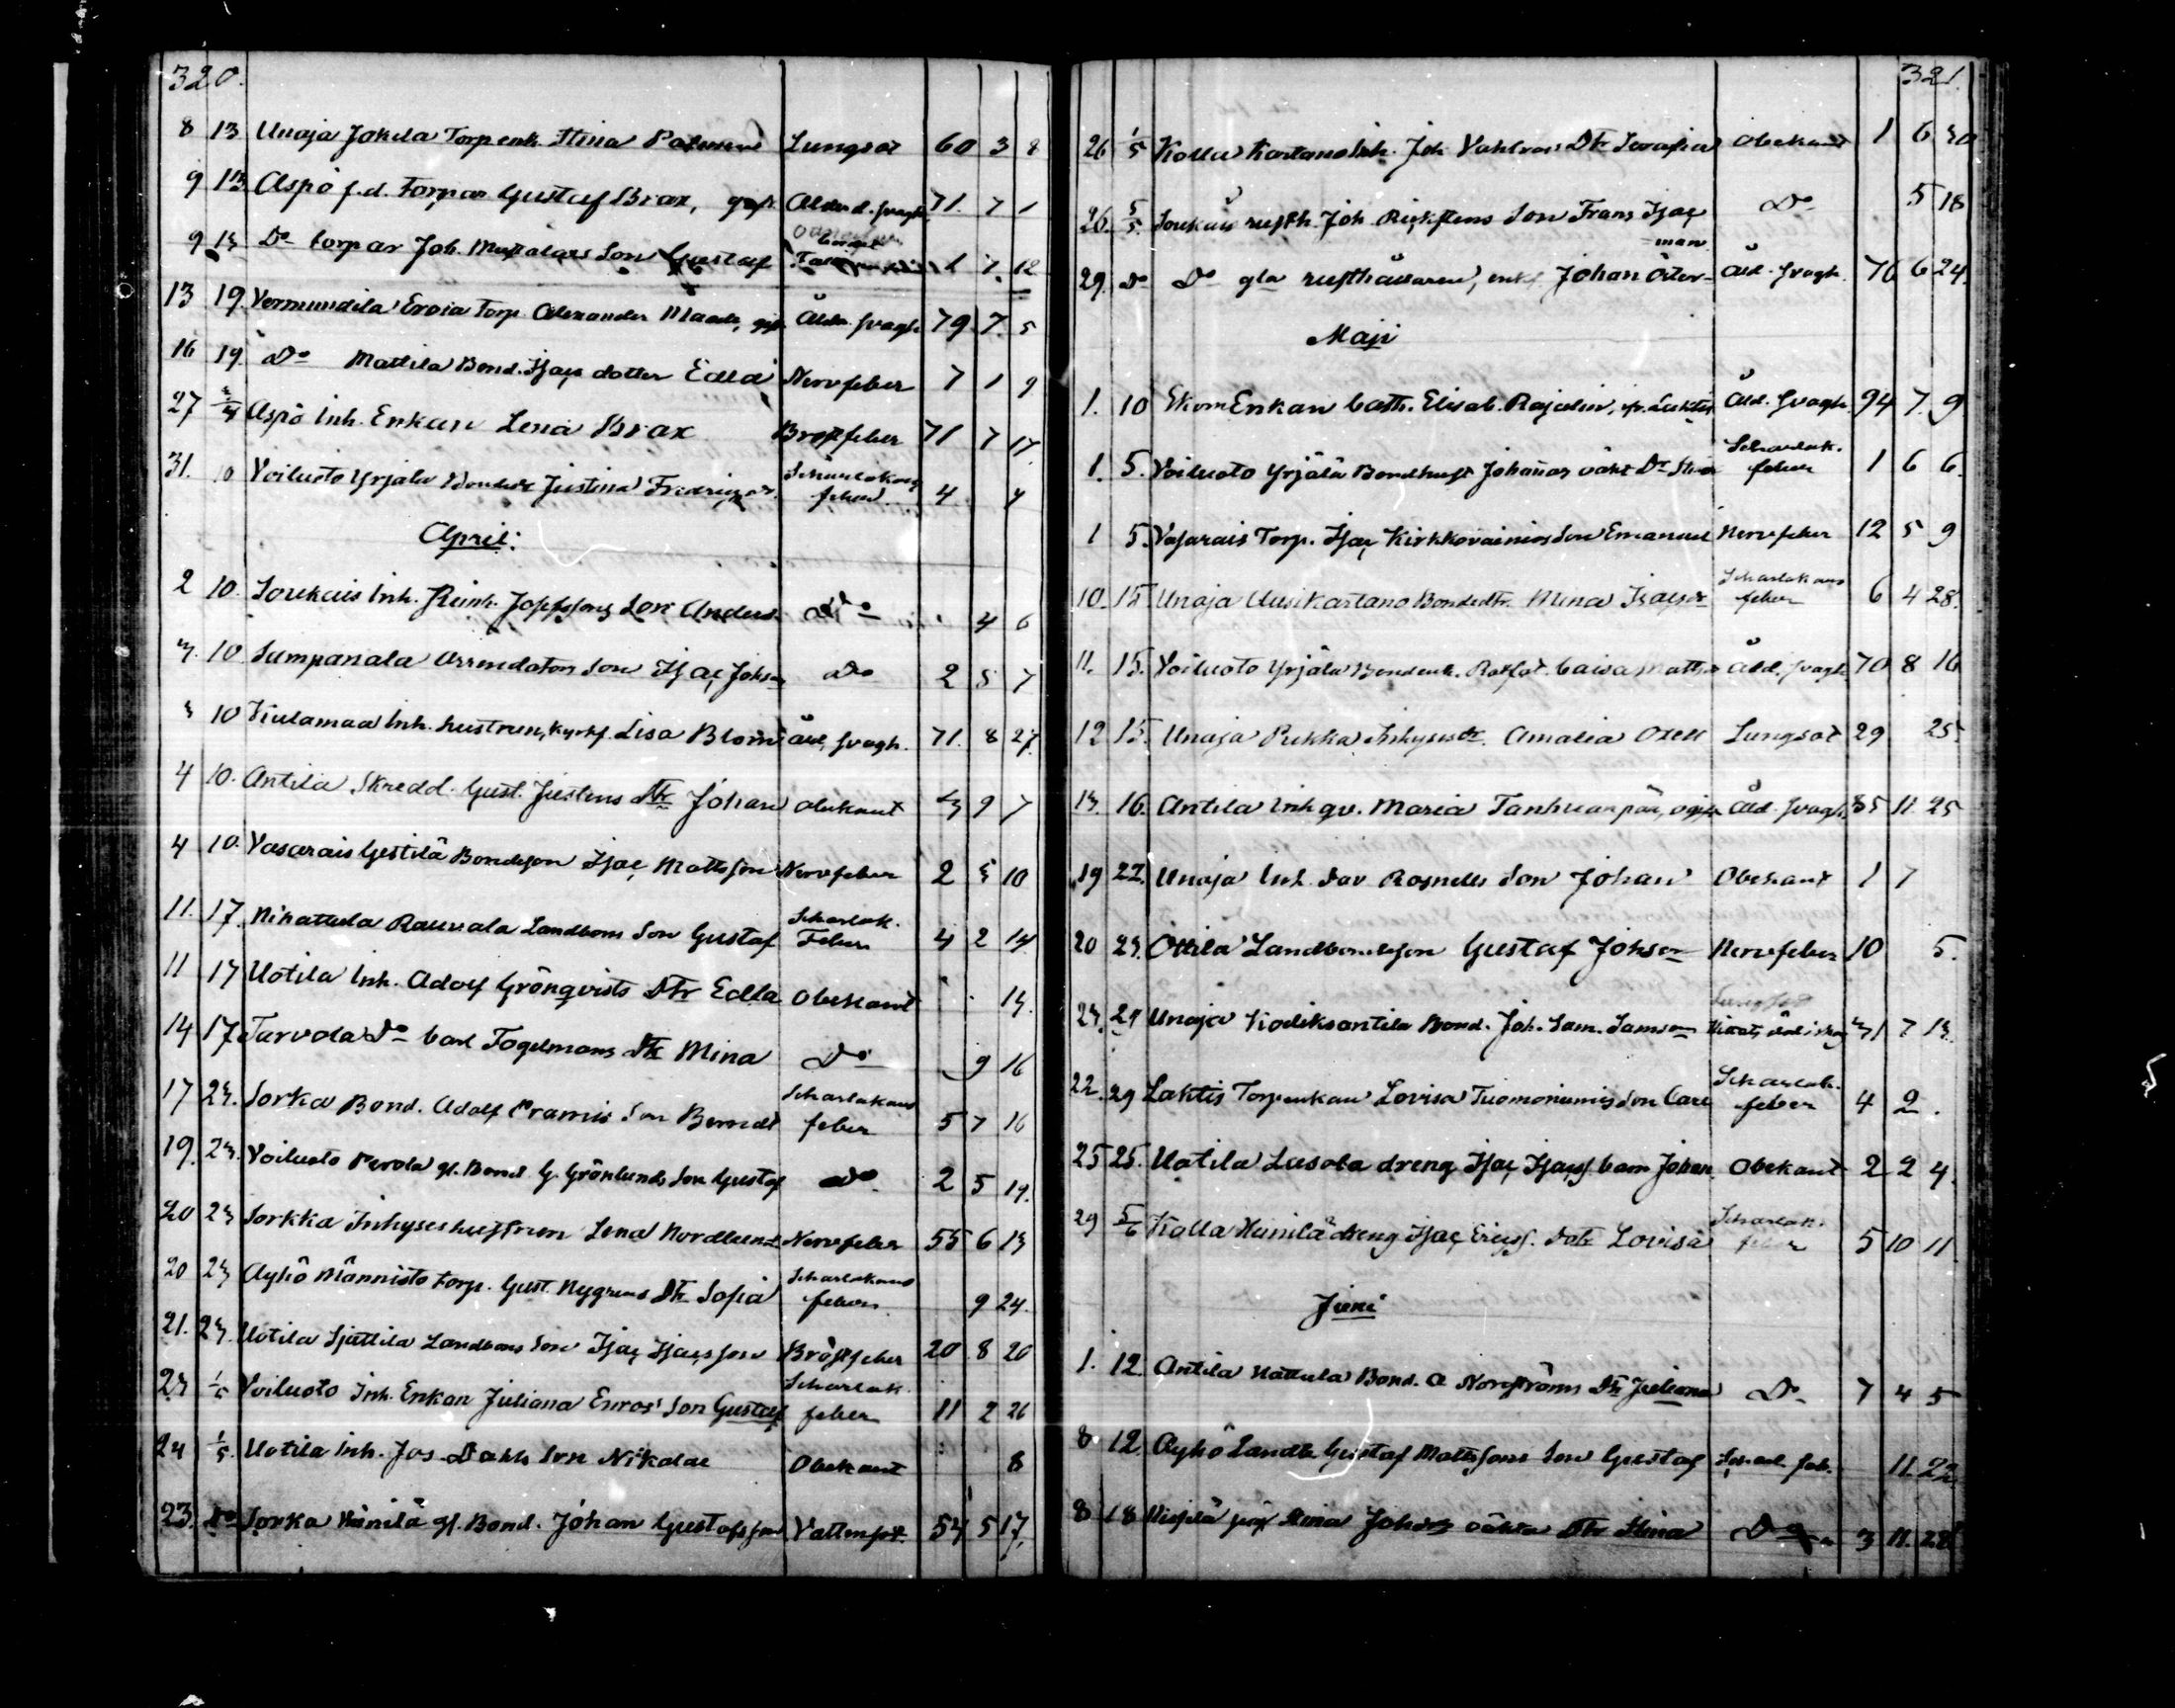 320.
8 13 Unaja Jokela Torpenk. Stina Lungsot 60 3 8
9 13 Aspö f.d. Torpar Gustaf Brax, gift Alderd. svagh. 71. 7 1
9 13 Do torpar Joh. Son Gustaf 1 7. 12
13 19. Vermundila Eroia Torp. Alexander Maade, gift Åld. svagh 79 7. 5
16 19. Do Mattila Bond. Isacs dotter Edla Nervfeber 7 1 9
27 Aspö Inh. Enkan Lena Brax Bröstfeber 71 7 17.
31. 10 Voiluoto Yrjälä Justina Fredriksdr. Scharlakans feber 4 4
April.
2 10. Soukais Inh. Reinh. Josefssons Son Anders Do 4 6
3. 10 Sampanala Arrendators Son Isac Johsson Do 2 5 7
3 10 Kulamaa Inh. hustrun, Lisa Blom Åld. svagh. 71. 8 27.
4 10. Antila Skredd. Gust. Justens Dtr Johan Obekant 3 9 7
4 10. Vasarais Gestilä Bondeson Isac Mattsson Nervfeber 2 3 10
11. 17. Nihattula Rauvala Landbons Son Gustaf Scharlak. Feber 4 2 14
11 17 Uotila Inh. Adolf Grönqvists Dtr Edla Obekant 13.
14 17 Tarvola Do Carl Fogelmans Dtr Mina Do 9 16
17 23. Sorka Bond. Adolf Eramis Son Berndt Scharlakans feber 5 7 16
19. 23. Voiluoto Perola gl. Bond G. Grönlunds Son Gustaf Do 2 5 19.
20 23 Sorkka Inhyseshustrun Lena Nordlund Nervfeber 55 6 13
20 23 Äyhö Männistö torp. Gust. Nygrens Dtr Sofia Scharlakans feber. 9 24.
21. 23. Uotila Sjuttila Landbons Son Isac Isacsson Bröstfeber 20. 8 20
23 1/5 Voiluoto Inh. Enkan Juliana Enros' Son Gustaf Scharlak. feber 11 2 26
24 1/5. Uotila Inh. Jos. Dahls Son Nikolai Obekant 8
23. Do Sorka Heinilä gl. Bond. Johan Gustafsson Vattensot. 54 5 17.
321.
26 1/5 Kolla Kartano Inh. Joh Vahlros Dtr Serafia Obekant 1 6 30
26. 5/5. Soukais rusth. Joh. Son Frans Isac Do 5 18
29. Do Do gla rusthållaren, enkl. Johan Öster=man Åld. svagh. 76 6 24.
Maji
1. 10 Enkan Cath. Elisab. Rajalin, Åld. svagh. 94 7. 9
1. 5. Voiluoto Yrjälä Johannas oäkt Dr Scharlak. feber 1 6 6.
1 5. Vasarais Torp. Isac Kirkkovainios Son Emanuel Nervfeber 12 5 9
10. 15 Unaja Uusikartano Bondedtr. Mina Isacsdr Scharlakans feber 6 4 28.
11. 15. Voiluoto Yrjälä Bondenk. Caisa Åld. svagh 70 8 16
12 15. Unaja Pukka Inhysesdr. Amalia Oxell Lungsot 29 25.
13. 16. Antila Inhqv. Maria Tanhuanpää, ogift Åld. svagh. 85 11. 25
19 22. Unaja Inh. Dav Rosnells Son Johan Obekant 1 7
20 23. Ottila Landbondeson Gustaf Johsson Nervfeber 10 5.
23. 29 Unaja Kodiksantila Bond. Joh. Sam. Samson 31 7 13.
22. 29 Laktis Torpenkan Lovisa Tuomoniemis Son Carl Scharlak. feber 4 2.
25 25. Uotila Lusola dreng Isac Isacss. barn Johan. Obekant 2 2 4.
29 5/6 Kolla Heinilä dreng Isac Ericss. Dotr Lovisa Scharlak. feber 5 10 11
Juni
1. 12. Antila Nattula Bond. A Norrströms Dtr Juliana Do 7 4 5
8. 12. Äyhö Landb Gustaf Mattssons Son Gustaf Scharl. feb. 11. 22
8 18 Stina Johsdr oäkta Dtr Stina Do 3 11. 28